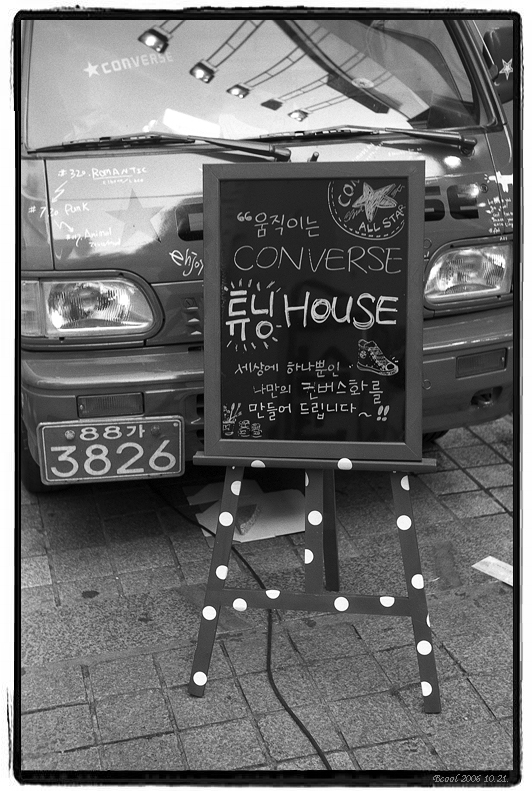 ★CONVERSE
#320. ROMANTIC
#720 Funk
enjoy
CON
ALL STAR
“움직이는
CONVERSE
튜닝 HOUSE
세상에 하나뿐인
나만의 컨버스화를
만들어 드립니다~!!
88가
3826
Bcool 2006.10.21.